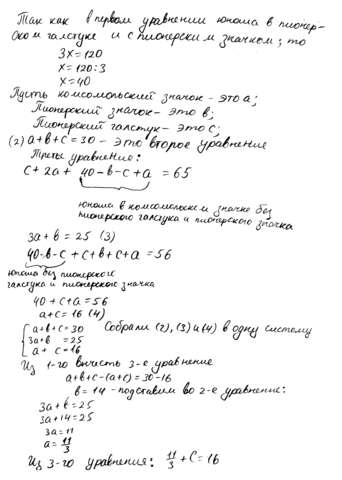 Так как в первом уравнении юноша в пионер-
ском галстуке и с пионерским значком, то
3x = 120
x = 120:3
x = 40
Пусть комсомольский значок - это a;
Пионерский значок - это b;
Пионерский галстук - это c;
(2) a+b+c=30 - это второе уравнение
Третье уравнение:
c + 2a + 40-b-c+a = 65
юноша в комсомольском значке без
пионерского галстука и пионерского значка
3a+b = 25 (3)
40-b-c + c+b+c+a = 56
юноша без пионерского
галстука и пионерского значка
40+c+a=56
a+c=16 (4)
{a+b+c=30 Собрали (2), (3) и (4) в одну систему
3a+b =25
a+ c=16
Из 1-го вычесть 3-е уравнение
a+b+c-(a+c)=30-16
b=14 - подставим во 2-е уравнение:
3a+b=25
3a+14=25
3a=11
a=11/3
Из 3-го уравнения: 11/3 + c = 16